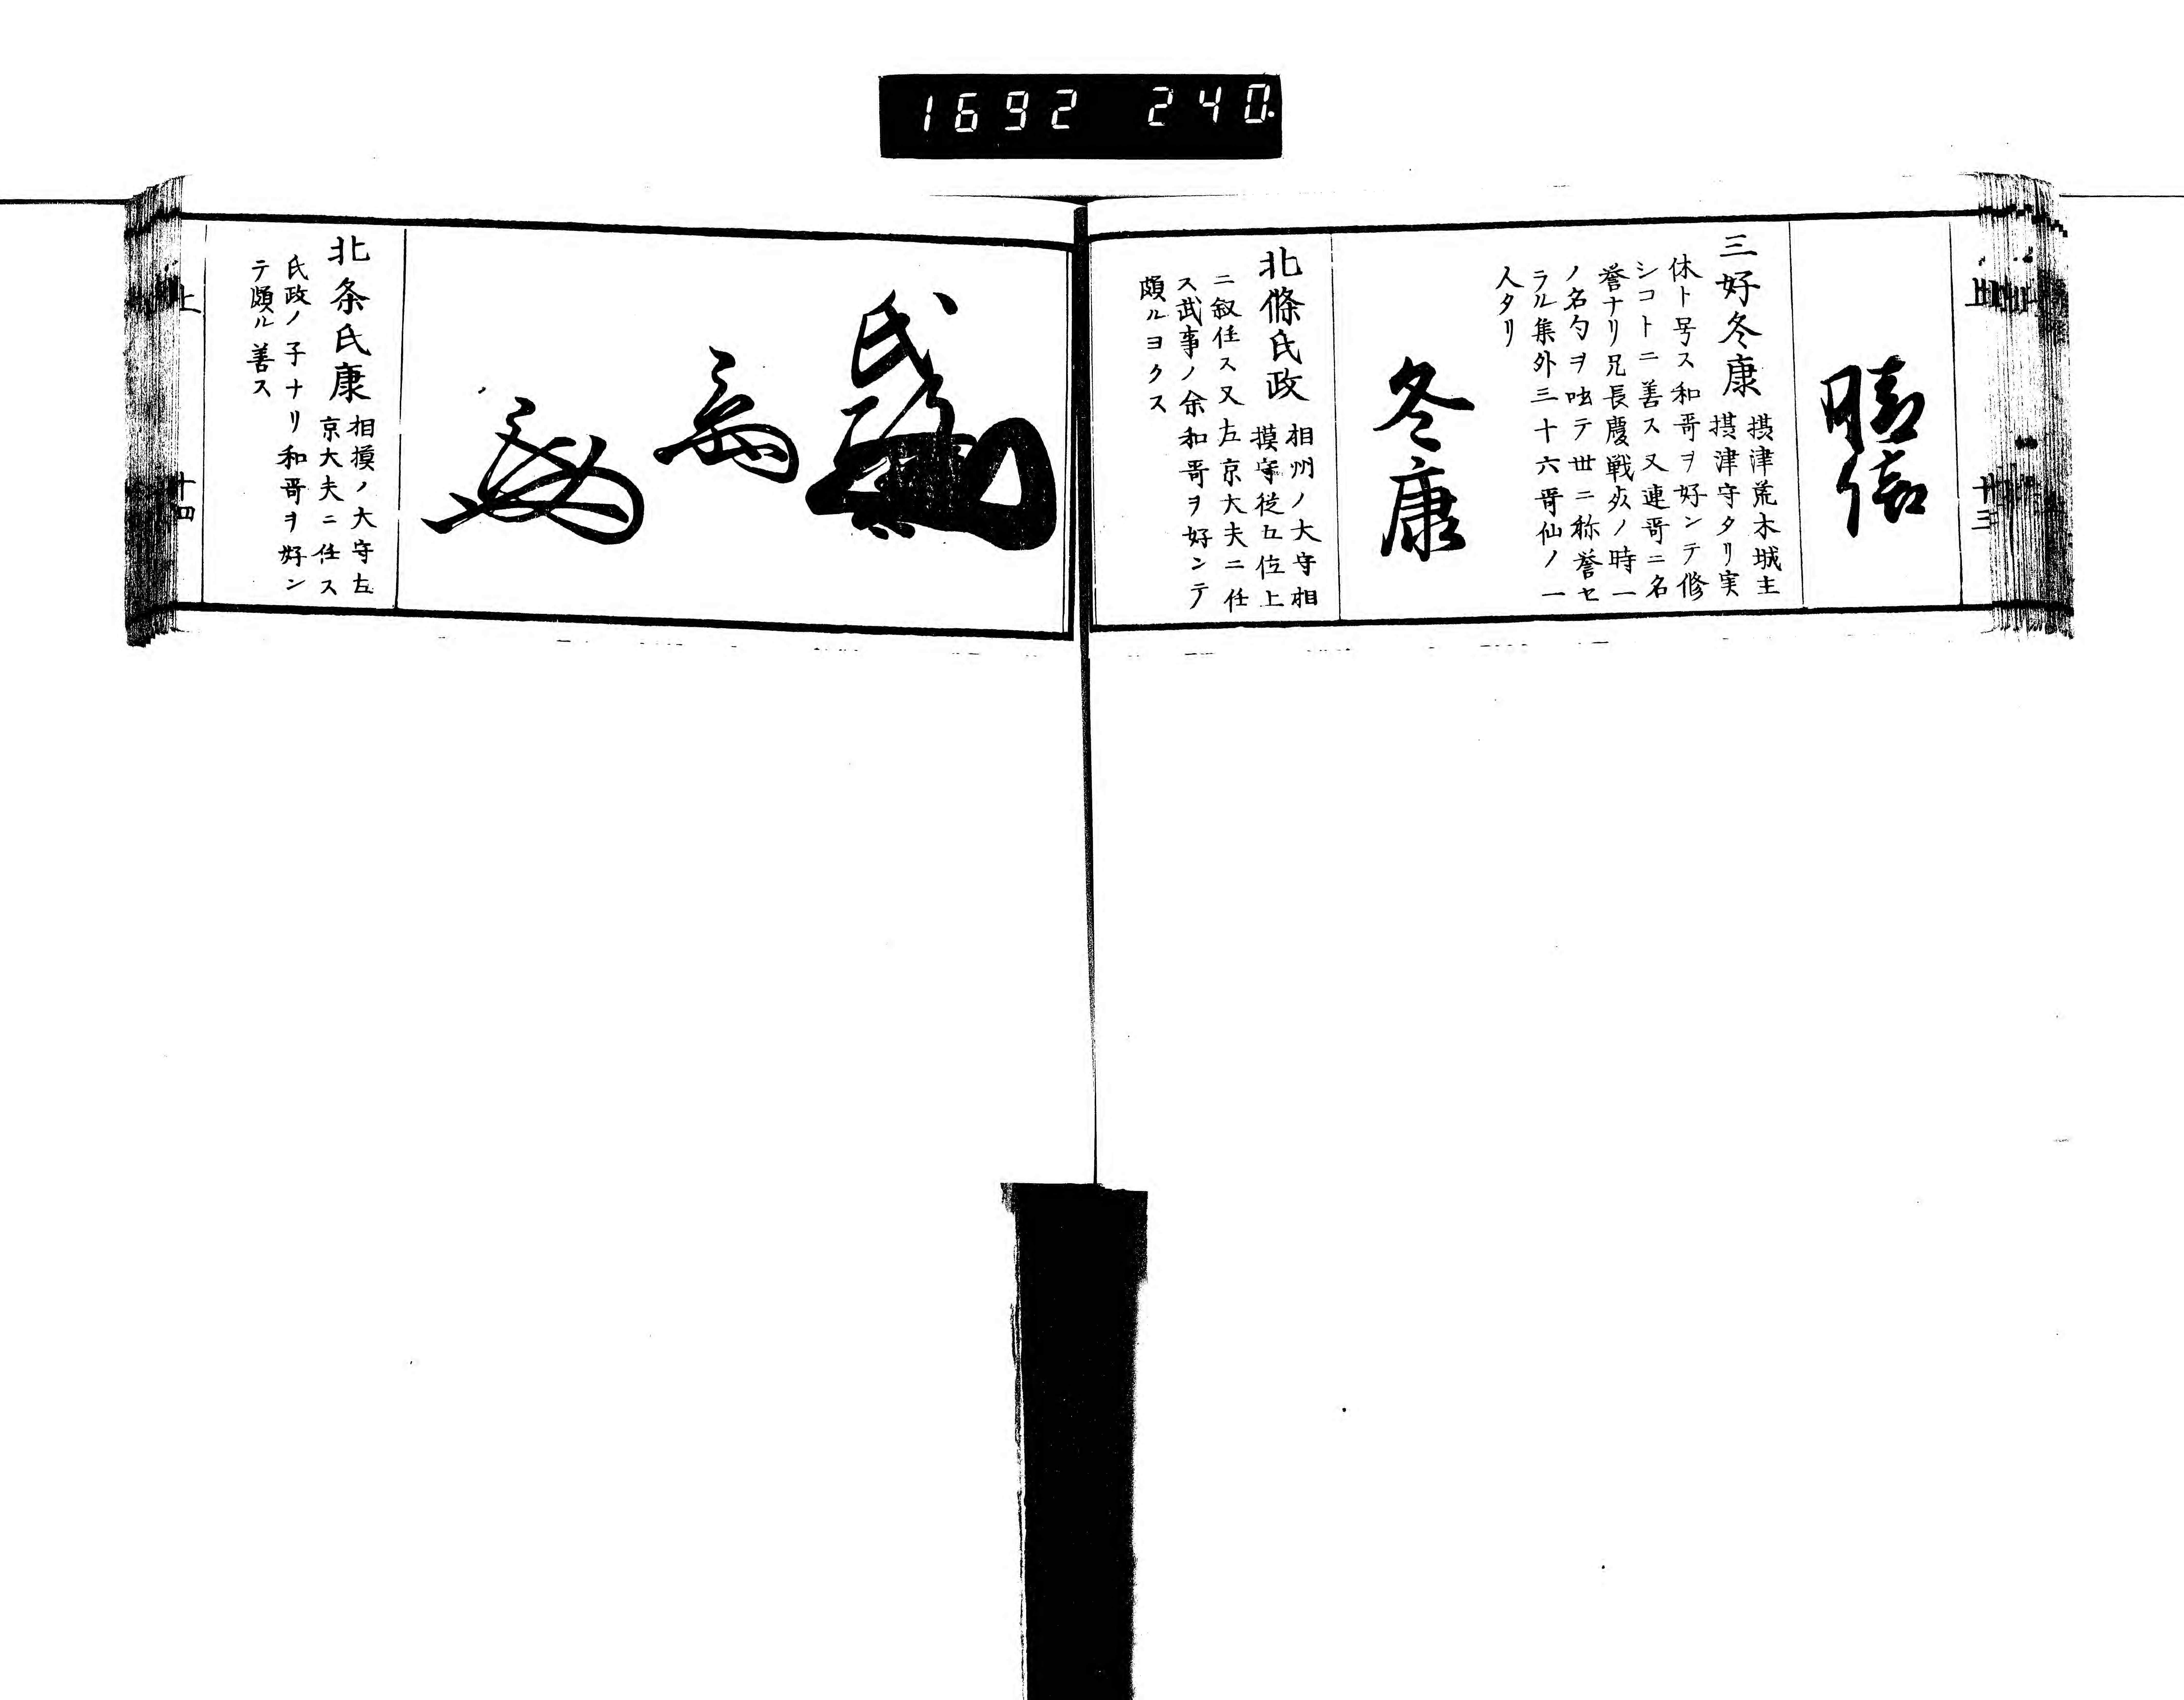 1692 240
上
十三
三好冬康
摂津荒木城主
摂津守タリ実
休ト号ス和哥ヲ好ンテ修
シコトニ善ス又連哥ニ名
誉ナリ兄長慶戦死ノ時一
ノ名句ヲ吐テ世ニ称誉セ
ラル集外三十六哥仙ノ一
人タリ
冬康
北條氏政
相州ノ大守相
摸守従五位上
ニ叙任ス又左京大夫ニ任
ス武事ノ余和哥ヲ好ンテ
頗ルヨクス
氏政
北条氏康
相摸ノ大守左
京大夫ニ任ス
氏政ノ子ナリ和哥ヲ好ン
テ頗ル善ス
上
十四